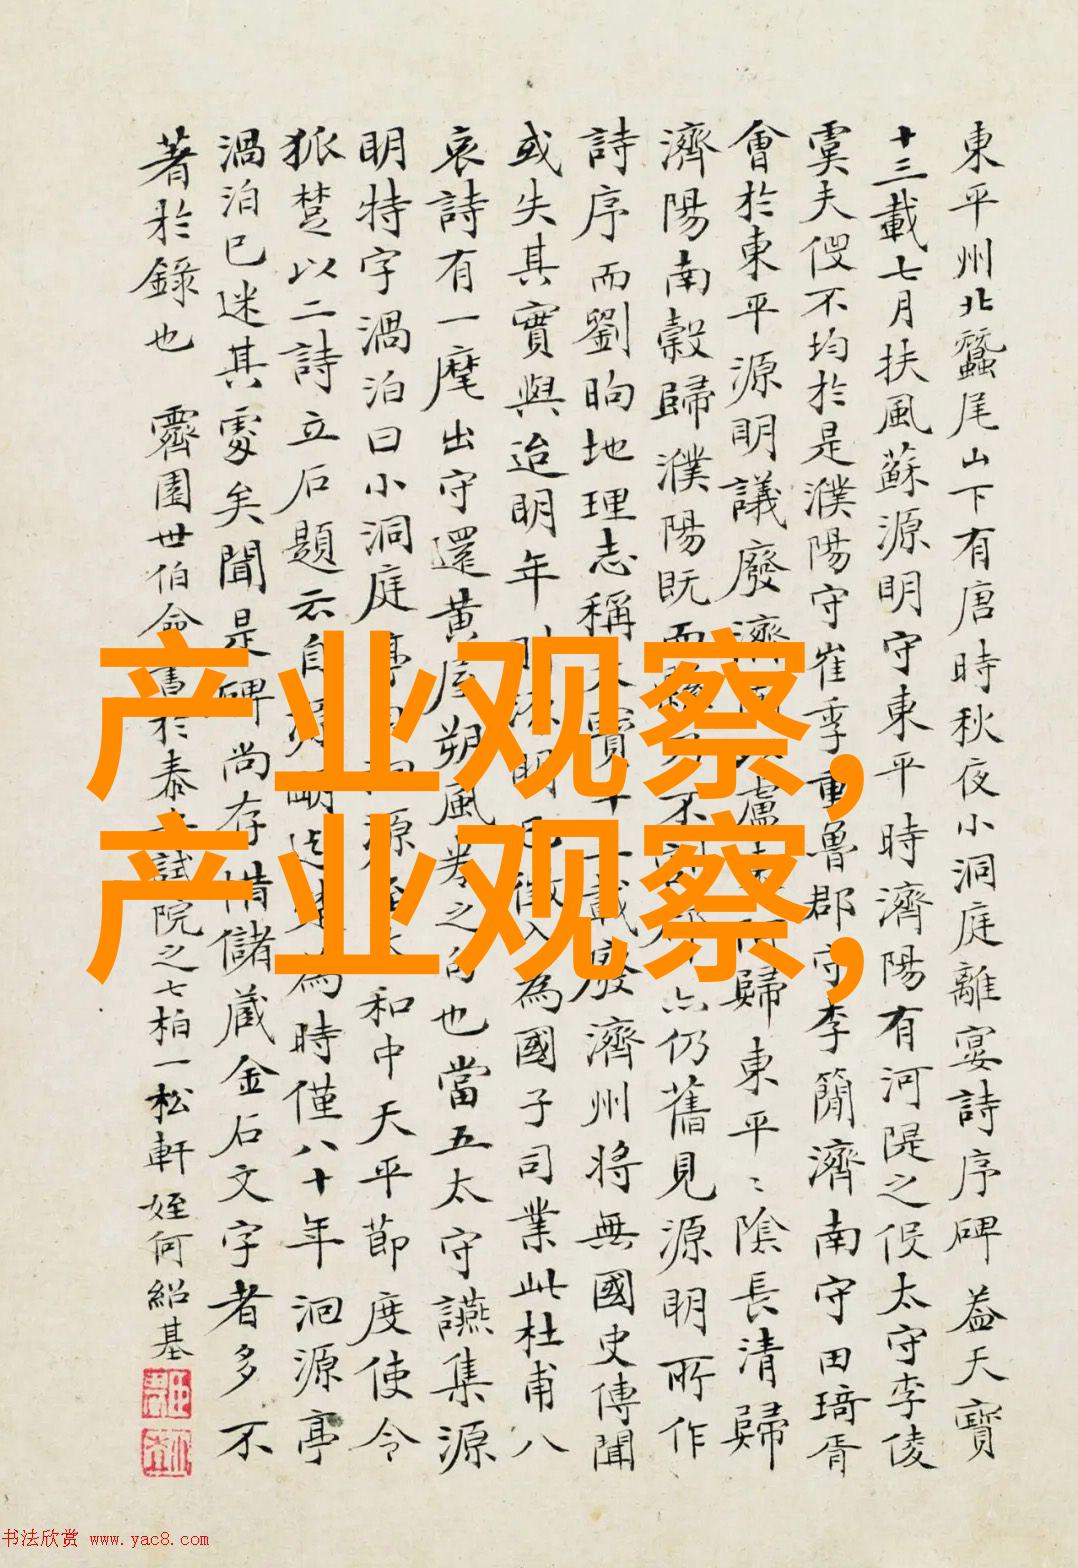 東平州北蠶尾山下有唐時秋夜小洞庭離宴詩序碑 蓋天寶
十三載七月扶風蘇源明守東平時濟陽有河隄之役太守李倰
虞夫役不均於是濮陽守崔季重魯郡守李簡濟南守田琦胥
會於東平源明議廢濟歸東平二陰長清歸
濟陽南穀歸濮陽既而仍舊見源明所作
詩序而劉昫地理志稱天寶十三載廢濟州將無國史傳聞
或失其實與迨明年則源明已徵入為國子司業此杜甫八
哀詩有一麾出守還黃屋朔風卷之句也當五太守讌集源
明特字渦泊曰小洞庭亭曰洄源至太和中天平節度使令
狐楚以二詩立石題云自源明迄楚為時僅八十年洄源亭
渦泊已迷其處矣聞是碑尚存惜儲藏金石文字者多不
著於錄也 霽園世伯命書於泰試院之七柏一松軒 姪何紹基
产业观察,
产业观察,
书法欣赏 www.yac8.com